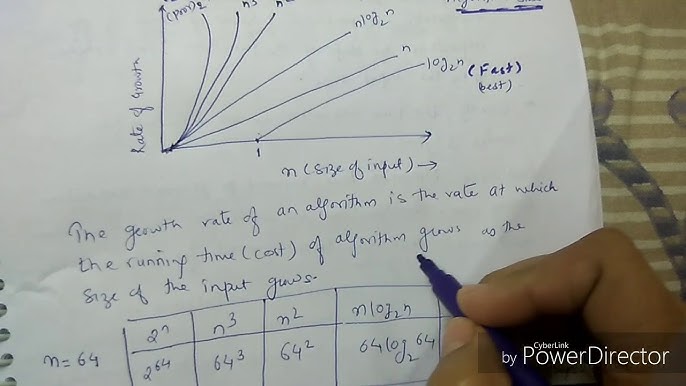 (poor) 2ⁿ n³ n² nlog₂n
n
log₂n (Fast)
(best)
Rate of Growth
1
n (size of input) →
The growth rate of an algorithm is the rate at which
the running time (cost) of algorithm grows as the
size of the input grows.
2ⁿ n³ n² nlog₂n
n=64 2⁶⁴ 64³ 64² 64log₂64
CyberLink
by PowerDirector